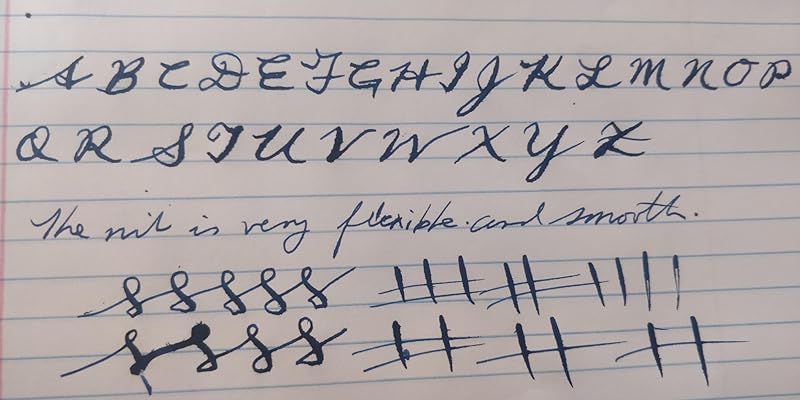 A B C D E F G H I J K L M N O P
Q R S T U V W X Y Z
The nib is very flexible and smooth.